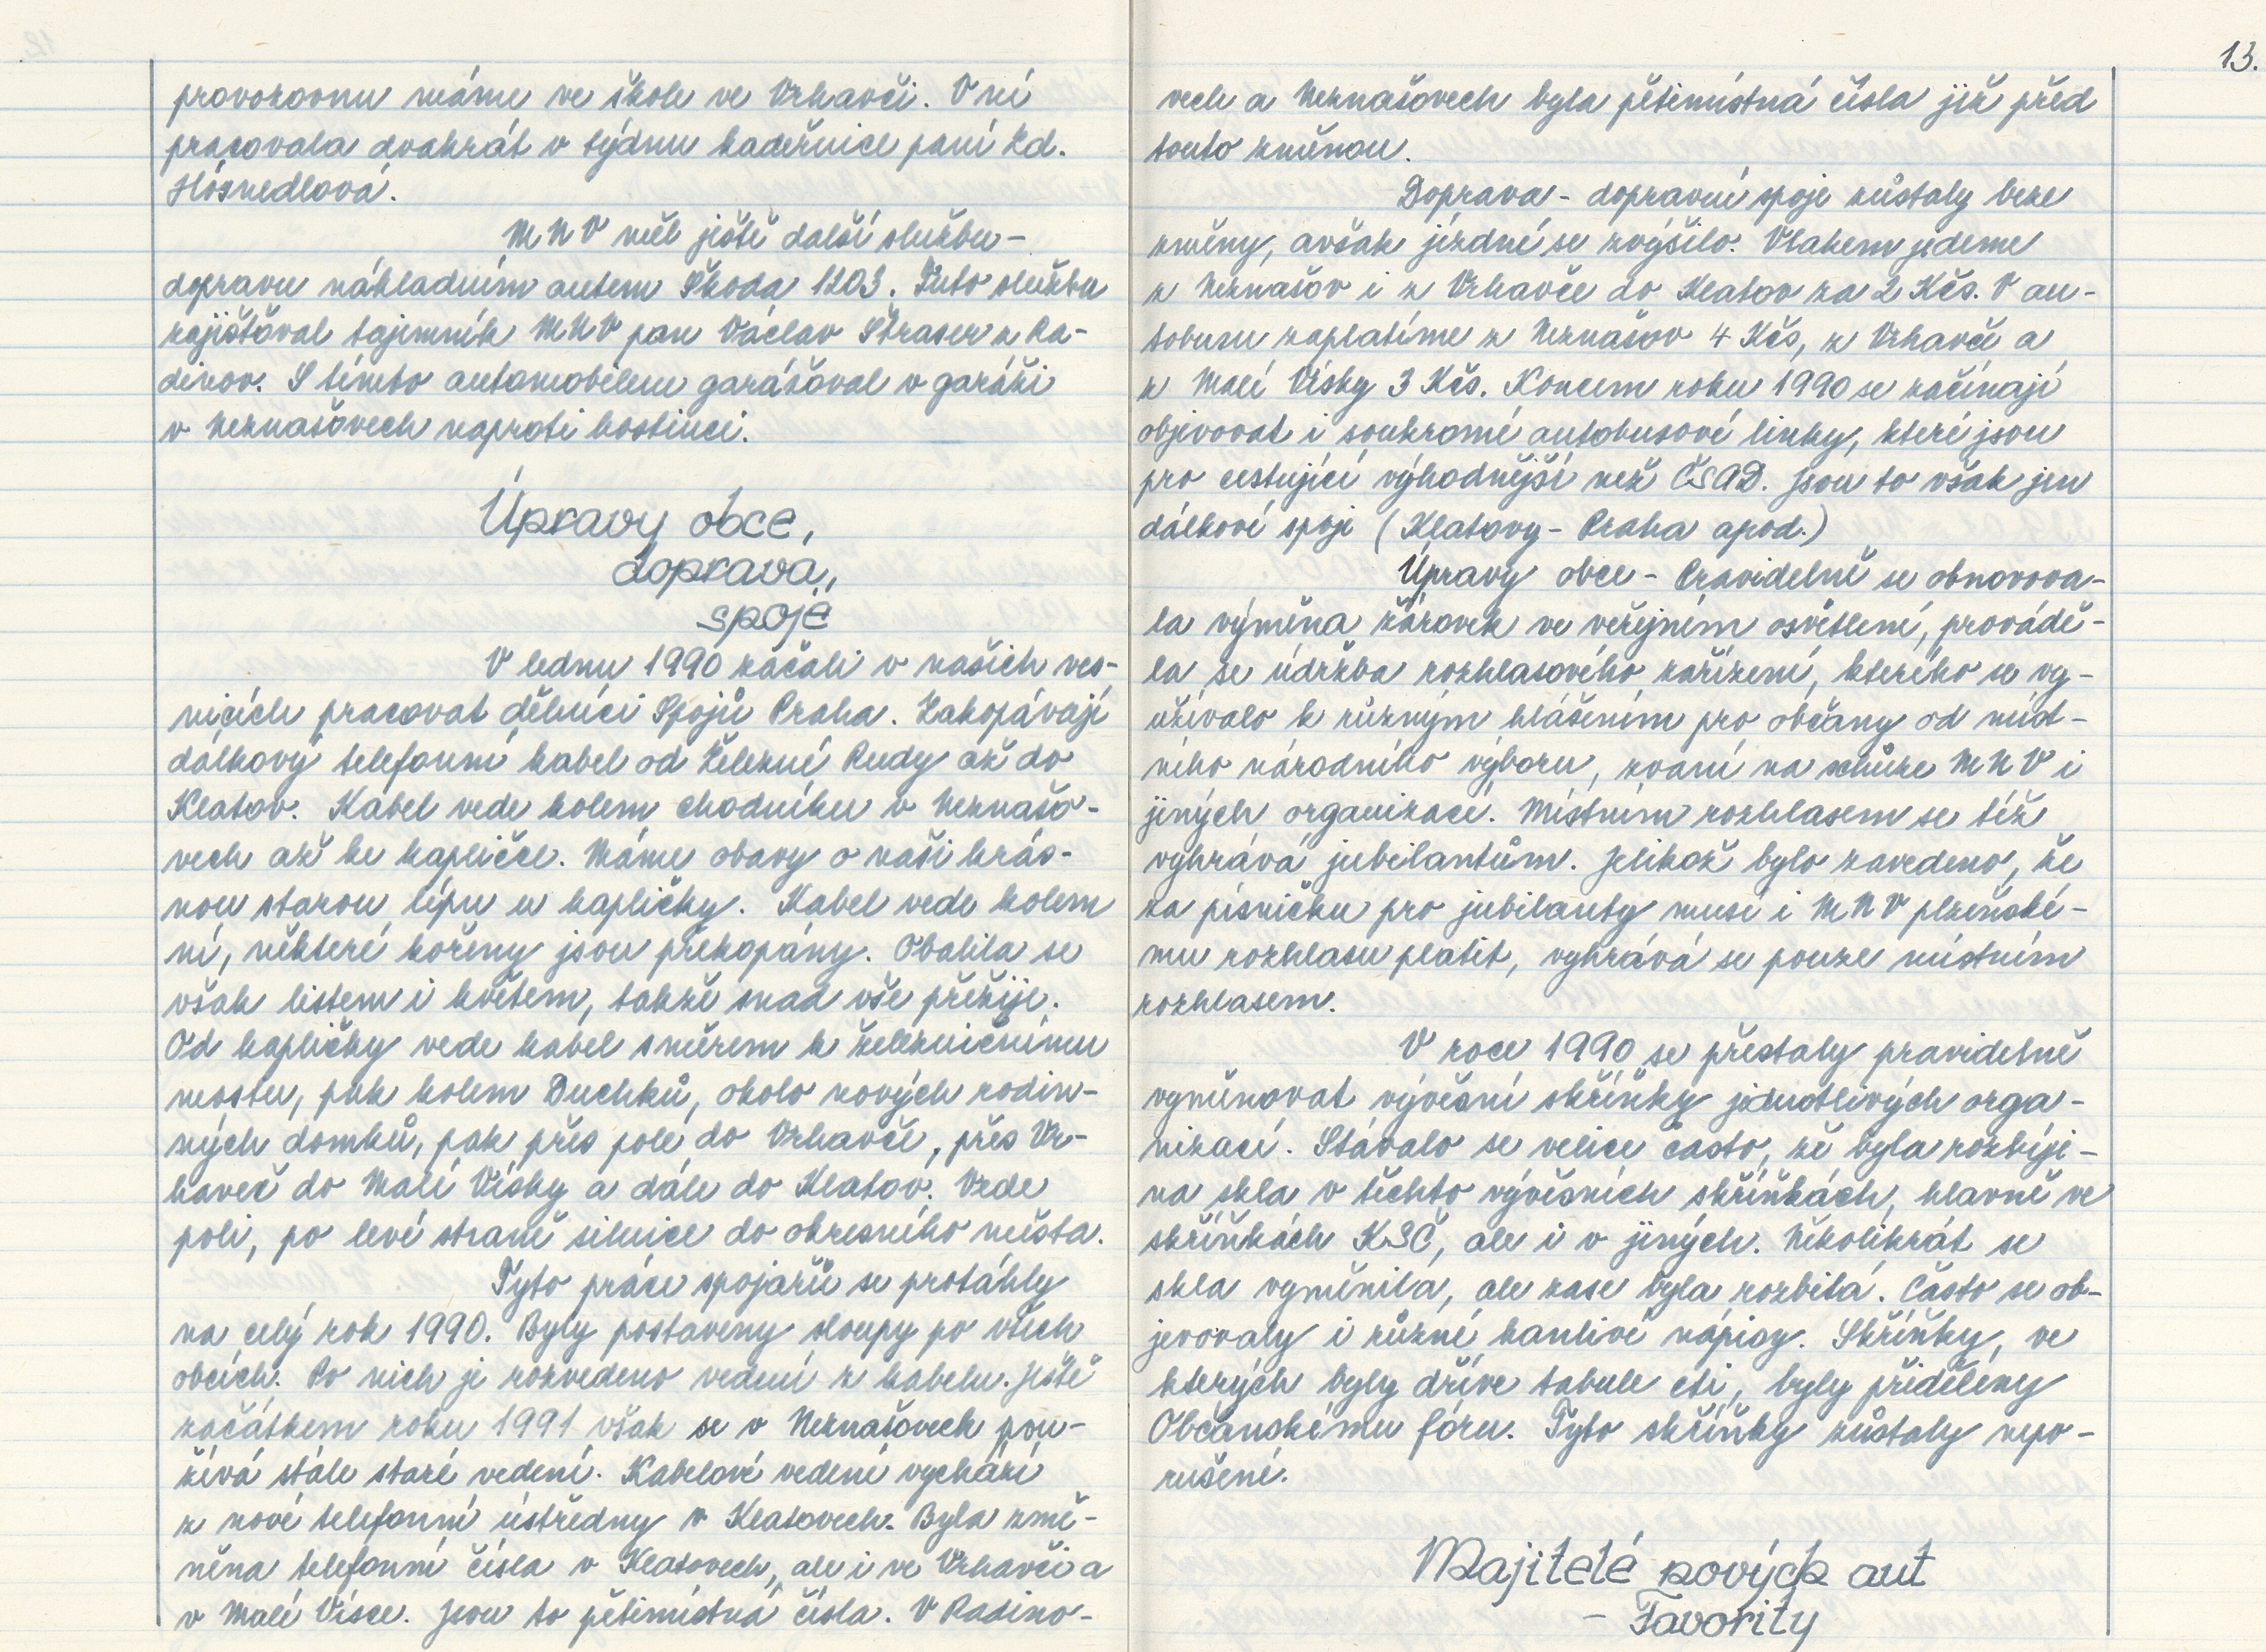 provozovnu máme ve škole ve Vrhavči. V ní
pracovala dvakrát v týdnu kadeřnice paní Zd.
Hósnedlová.
MNV měl ještě další službu-
dopravu nákladním autem Škoda 1203. Tuto službu
zajišťoval tajemník MNV pan Václav Štraser z Ra-
dinov. S tímto automobilem garážoval v garáži
v Neznašovech naproti hostinci.
Úpravy obce,
doprava,
spoje
V lednu 1990 začali v našich ves-
nicích pracovat dělníci Spojů Praha. Zakopávají
dálkový telefonní kabel od Železné Rudy až do
Klatov. Kabel vede kolem chodníku v Neznašo-
vech až ke kapličce. Máme obavy o naši krás-
nou starou lípu u kapličky. Kabel vede kolem
ní, některé kořeny jsou překopány. Obalila se
však listem i květem, takže snad vše přežije.
Od kapličky vede kabel směrem k železničnímu
mostu, pak kolem Duchků, okolo nových rodin-
ných domků, pak přes pole do Vrhavče, přes Vr-
haveč do Malé Vísky a dále do Klatov. Vede
poli, po levé straně silnice do okresního města.
Tyto práce spojařů se protáhly
na celý rok 1990. Byly postaveny sloupy po všech
obcích. Po nich je rozvedeno vedení z kabelu. Ještě
začátkem roku 1991 však se v Neznašovech pou-
žívá stále staré vedení. Kabelové vedení vychází
z nové telefonní ústředny v Klatovech. Byla změ-
něna telefonní čísla v Klatovech, ale i ve Vrhavči a
v Malé Vísce. Jsou to pětimístná čísla. V Radino-
13.
vech a Neznašovech byla pětimístná čísla již před
touto změnou.
Doprava - dopravní spoje zůstaly beze
změny, avšak jízdné se zvýšilo. Vlakem jedeme
z Neznašov i z Vrhavče do Klatov za 2 Kčs. V au-
tobusu zaplatíme z Neznašov 4 Kčs, z Vrhavče a
z Malé Vísky 3 Kčs. Koncem roku 1990 se začínají
objevovat i soukromé autobusové linky, které jsou
pro cestující výhodnější než ČSAD. Jsou to však jen
dálkové spoje (Klatovy - Praha apod.)
Úpravy obce - Pravidelně se obnovova-
la výměna žárovek ve veřejném osvětlení, provádě-
la se údržba rozhlasového zařízení, kterého se vy-
užívalo k různým hlášením pro občany od míst-
ního národního výboru, zvaní na schůze MNV i
jiných organizací. Místním rozhlasem se též
vyhrává jubilantům. Jelikož bylo zavedeno, že
za písničku pro jubilanty musí i MNV plzeňské-
mu rozhlasu platit, vyhrává se pouze místním
rozhlasem.
V roce 1990 se přestaly pravidelně
vyměňovat vývěsní skříňky jednotlivých orga-
nizací. Stávalo se velice často, že byla rozbíje-
na skla v těchto vývěsních skříňkách, hlavně ve
skříňkách KSČ, ale i v jiných. Několikrát se
skla vyměnila, ale zase byla rozbitá. Často se ob-
jevovaly i různé hanlivé nápisy. Skříňky, ve
kterých byly dříve tabule cti, byly přiděleny
Občanskému fóru. Tyto skříňky zůstaly nepo-
rušené.
Majitelé nových aut
- Favority